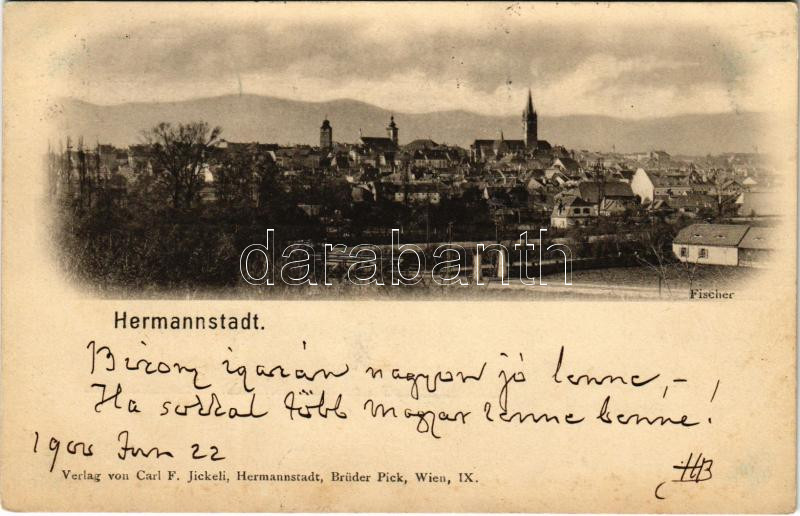 darabanth
Fischer
Hermannstadt.
Bizony igazán nagyon jó lenne, –
Ha sokkal több magyar lenne benne!
1900 Jun 22
HB
Verlag von Carl F. Jickeli, Hermannstadt, Brüder Pick, Wien, IX.